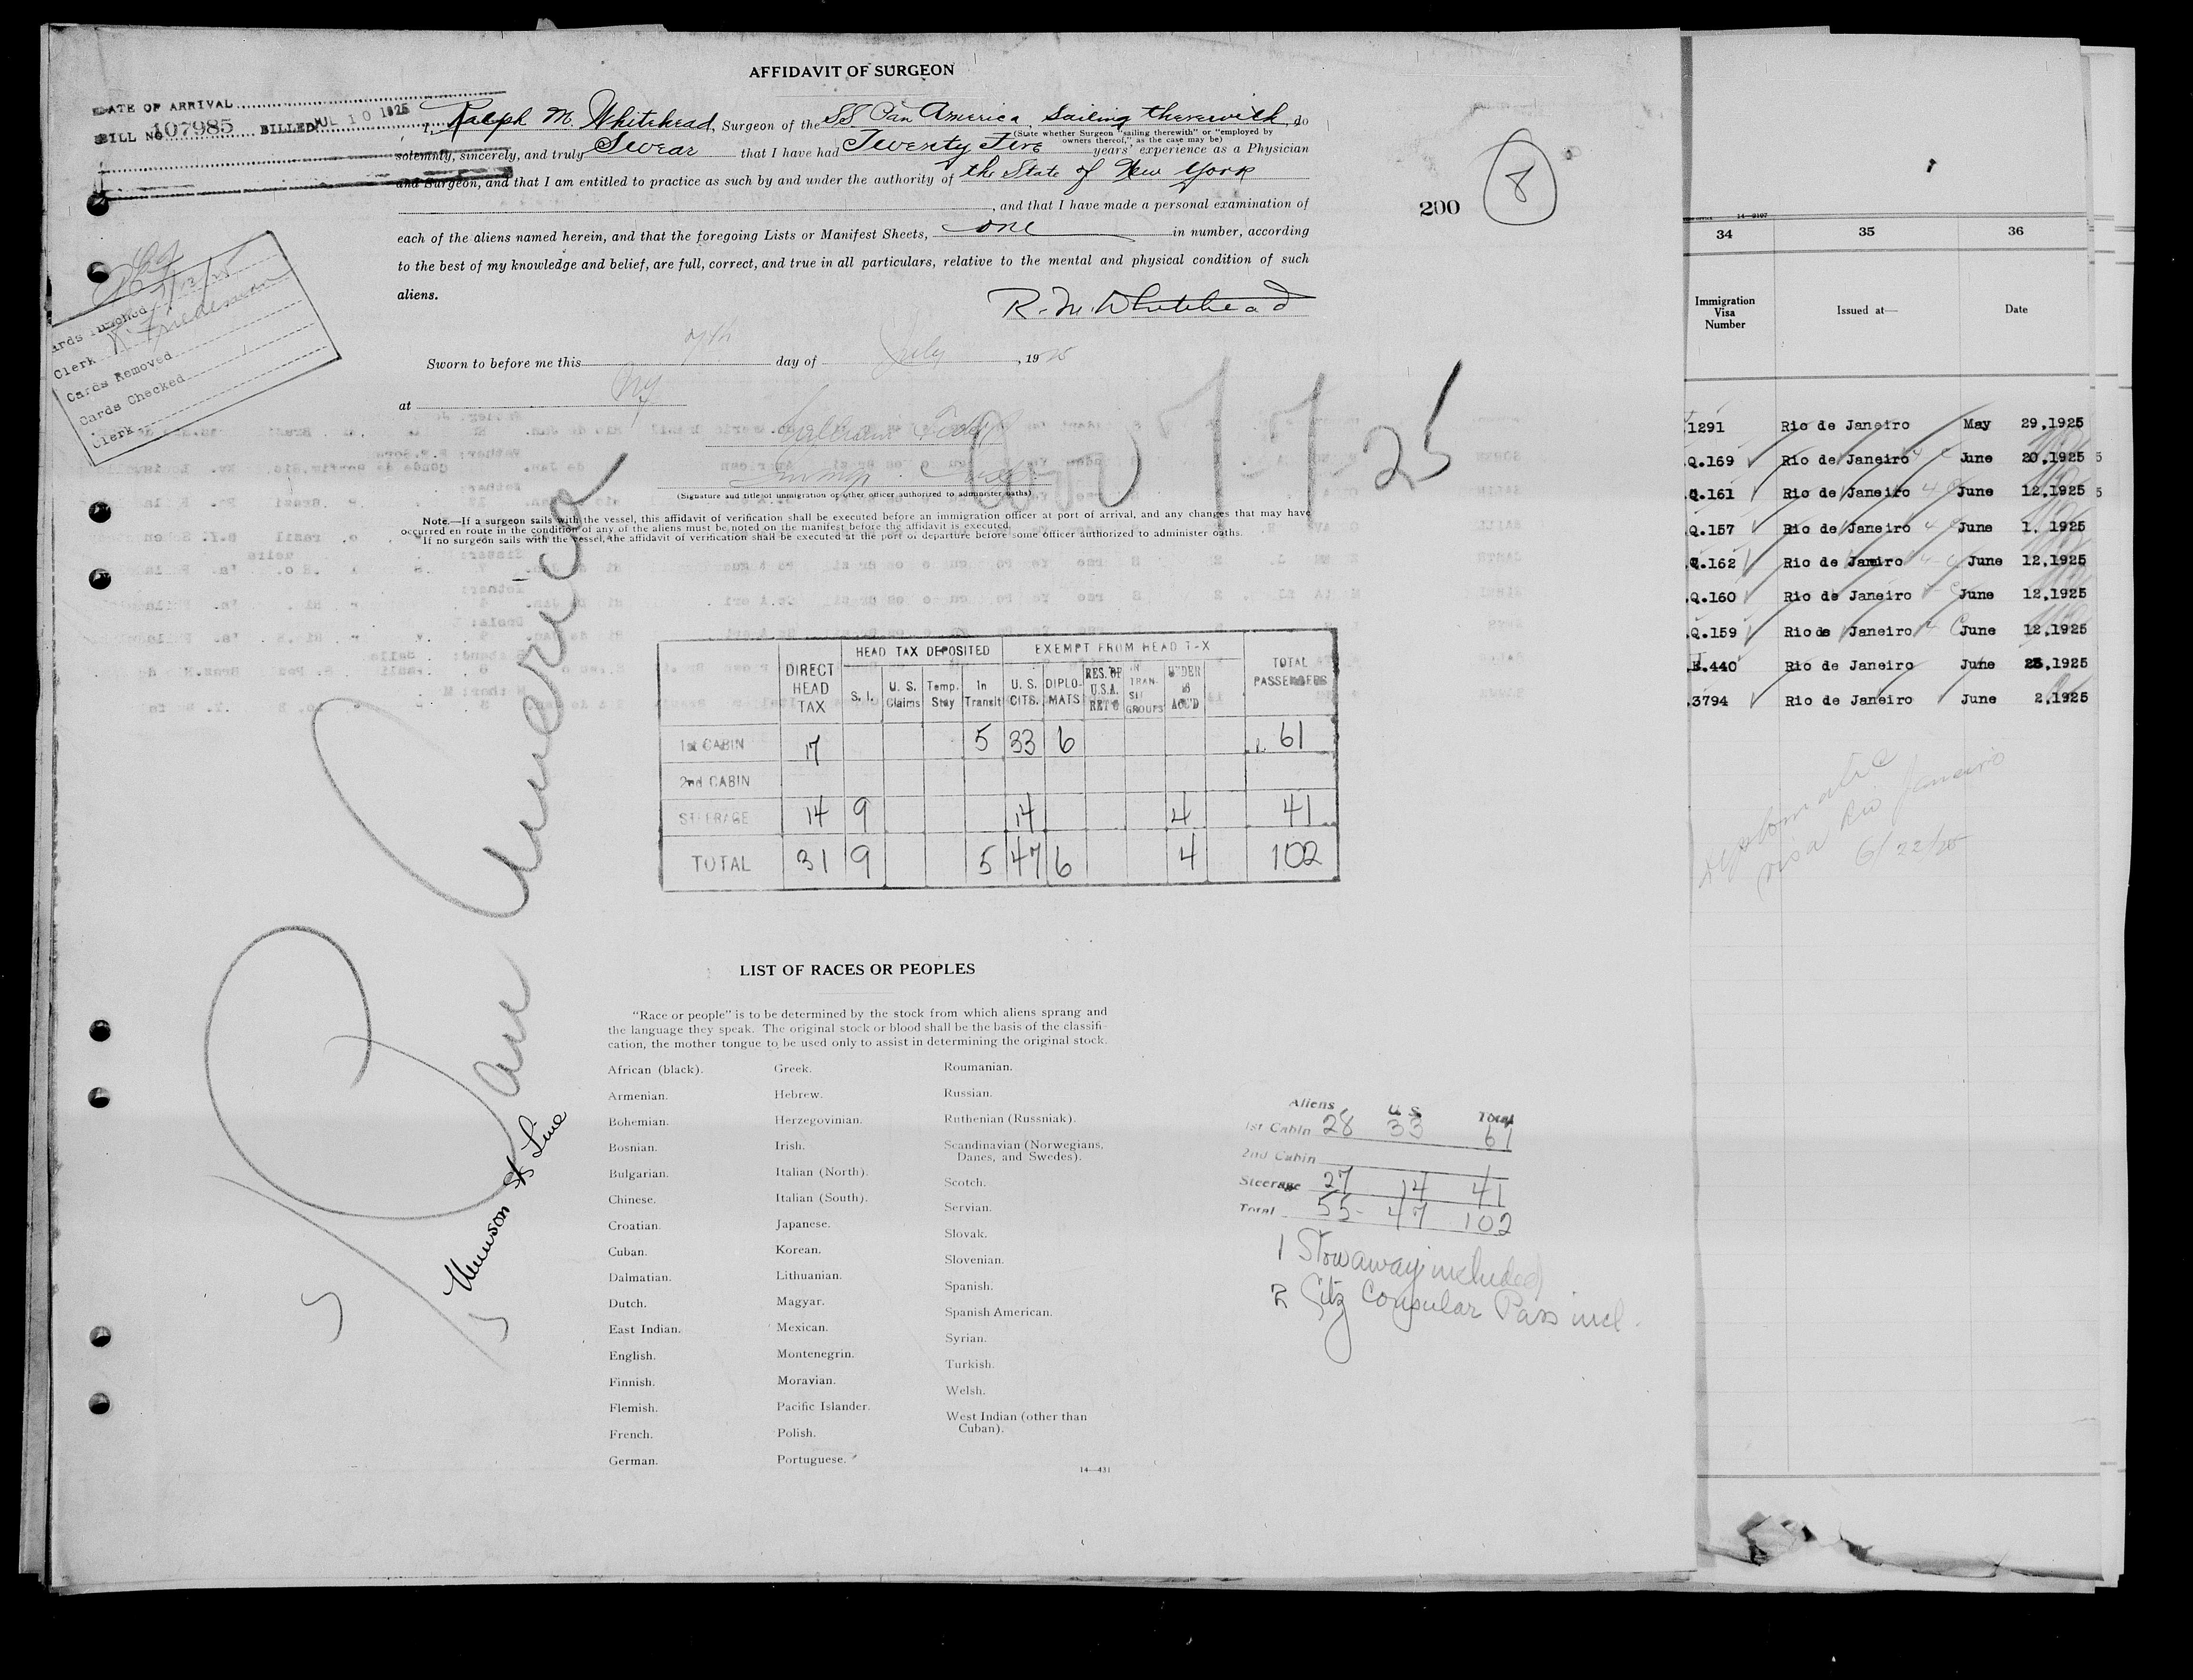 AFFIDAVIT OF SURGEON
DATE OF ARRIVAL
BILL NO. 107985 BILLED JUL 10 1925
I, Ralph M. Whitehead, Surgeon of the SS Pan America, sailing therewith, do
(State whether Surgeon "sailing therewith" or "employed by
owners thereof," as the case may be)
solemnly, sincerely, and truly Swear that I have had Twenty Five years' experience as a Physician
and Surgeon, and that I am entitled to practice as such by and under the authority of the State of New York
, and that I have made a personal examination of
each of the aliens named herein, and that the foregoing Lists or Manifest Sheets, one in number, according
to the best of my knowledge and belief, are full, correct, and true in all particulars, relative to the mental and physical condition of such
aliens.
R. M. Whitehead
200
8
Clerk
Cards Removed
Cards Checked
Clerk
Sworn to before me this 7th day of July, 1925
at NY
(Signature and title of immigration or other officer authorized to administer oaths)
Arr 7-7-25
Note.—If a surgeon sails with the vessel, this affidavit of verification shall be executed before an immigration officer at port of arrival, and any changes that may have
occurred en route in the condition of any of the aliens must be noted on the manifest before the affidavit is executed.
If no surgeon sails with the vessel, the affidavit of verification shall be executed at the port of departure before some officer authorized to administer oaths.
Pan America
Munson SS Line
DIRECT HEAD TAX HEAD TAX DEPOSITED EXEMPT FROM HEAD TAX TOTAL PASSENGERS
S. I. U. S. Claims Temp. Stay In Transit U. S. CITS. DIPLOMATS RES. OF U.S.A. RET'G IN TRANSIT GROUPS UNDER 16 ACC'D
1st CABIN 17 5 33 6 61
2nd CABIN
STEERAGE 14 9 14 4 41
TOTAL 31 9 5 47 6 4 102
LIST OF RACES OR PEOPLES
"Race or people" is to be determined by the stock from which aliens sprang and
the language they speak. The original stock or blood shall be the basis of the classifi-
cation, the mother tongue to be used only to assist in determining the original stock.
African (black).
Armenian.
Bohemian.
Bosnian.
Bulgarian.
Chinese.
Croatian.
Cuban.
Dalmatian.
Dutch.
East Indian.
English.
Finnish.
Flemish.
French.
German.
Greek.
Hebrew.
Herzegovinian.
Irish.
Italian (North).
Italian (South).
Japanese.
Korean.
Lithuanian.
Magyar.
Mexican.
Montenegrin.
Moravian.
Pacific Islander.
Polish.
Portuguese.
Roumanian.
Russian.
Ruthenian (Russniak).
Scandinavian (Norwegians,
Danes, and Swedes).
Scotch.
Servian.
Slovak.
Slovenian.
Spanish.
Spanish American.
Syrian.
Turkish.
Welsh.
West Indian (other than
Cuban).
14—431
Aliens U S Total
1st Cabin 28 33 61
2nd Cabin
Steerage 27 14 41
Total 55 47 102
1 Stowaway included
2 Citz Consular Pass incl.
14—2107
34 35 36
Immigration Visa Number Issued at— Date
1291 Rio de Janeiro May 29,1925
Q.169 Rio de Janeiro June 20,1925
Q.161 Rio de Janeiro June 12,1925
Q.157 Rio de Janeiro June 1, 1925
Q.162 Rio de Janeiro June 12,1925
Q.160 Rio de Janeiro June 12,1925
Q.159 Rio de Janeiro June 12,1925
.440 Rio de Janeiro June 25,1925
3794 Rio de Janeiro June 2,1925
diplomatic
visa Rio Janeiro
6/22/25